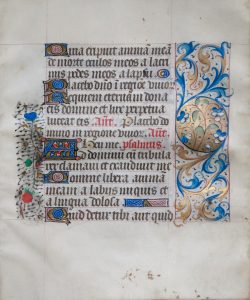 Quia eripuit animā meā
de morte oculos meos a lacri
mis pedes meos a lapsu.
Placebo dño ī regiōe vivor.
Requiem eternā in dona
eis domine et lux perpetua
luceat eis. Añt. Placebo do
mino in regione vivor. Añt.
Heu me. psalmus.
Ad dominū cū tribula
rer clamavi et exaudivit me
Domine libera animā
meam a labiis iniquis et
a lingua dolosa
Quid detur tibi aut quid